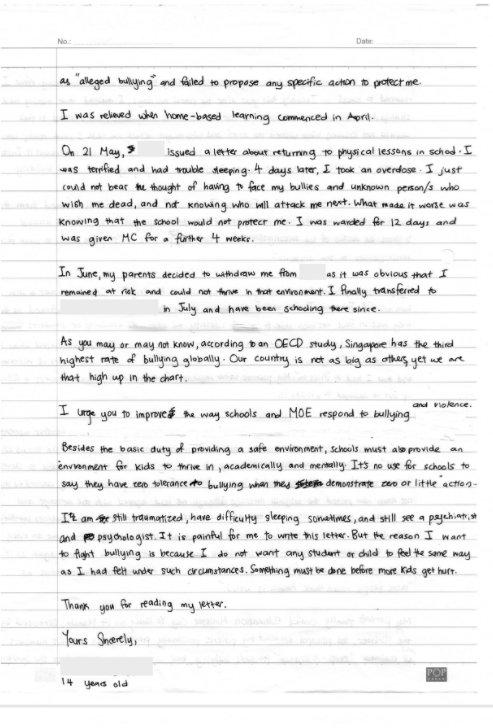 No.:
Date:
as "alleged bullying" and failed to propose any specific action to protect me.
I was relieved when home-based learning commenced in April.
On 21 May, issued a letter about returning to physical lessons in school. I
was terrified and had trouble sleeping. 4 days later, I took an overdose. I just
could not bear the thought of having to face my bullies and unknown person/s who
wish me dead, and not knowing who will attack me next. What made it worse was
knowing that the school would not protect me. I was warded for 12 days and
was given MC for a further 4 weeks.
In June, my parents decided to withdraw me from as it was obvious that I
remained at risk and could not thrive in that environment. I finally transferred to
in July and have been schooling there since.
As you may or may not know, according to an OECD study, Singapore has the third
highest rate of bullying globally. Our country is not as big as others, yet we are
that high up in the chart.
and violence.
I urge you to improve the way schools and MOE respond to bullying
Besides the basic duty of providing a safe environment, schools must also provide an
environment for kids to thrive in, academically and mentally. It's no use for schools to
say they have zero tolerance to bullying when they demonstrate zero or little action.
I am still traumatized, have difficulty sleeping sometimes, and still see a psychiatrist
and psychologist. It is painful for me to write this letter. But the reason I want
to fight bullying is because I do not want any student or child to feel the same way
as I had felt under such circumstances. Something must be done before more kids get hurt.
Thank you for reading my letter.
Yours Sincerely,
14 years old
POP